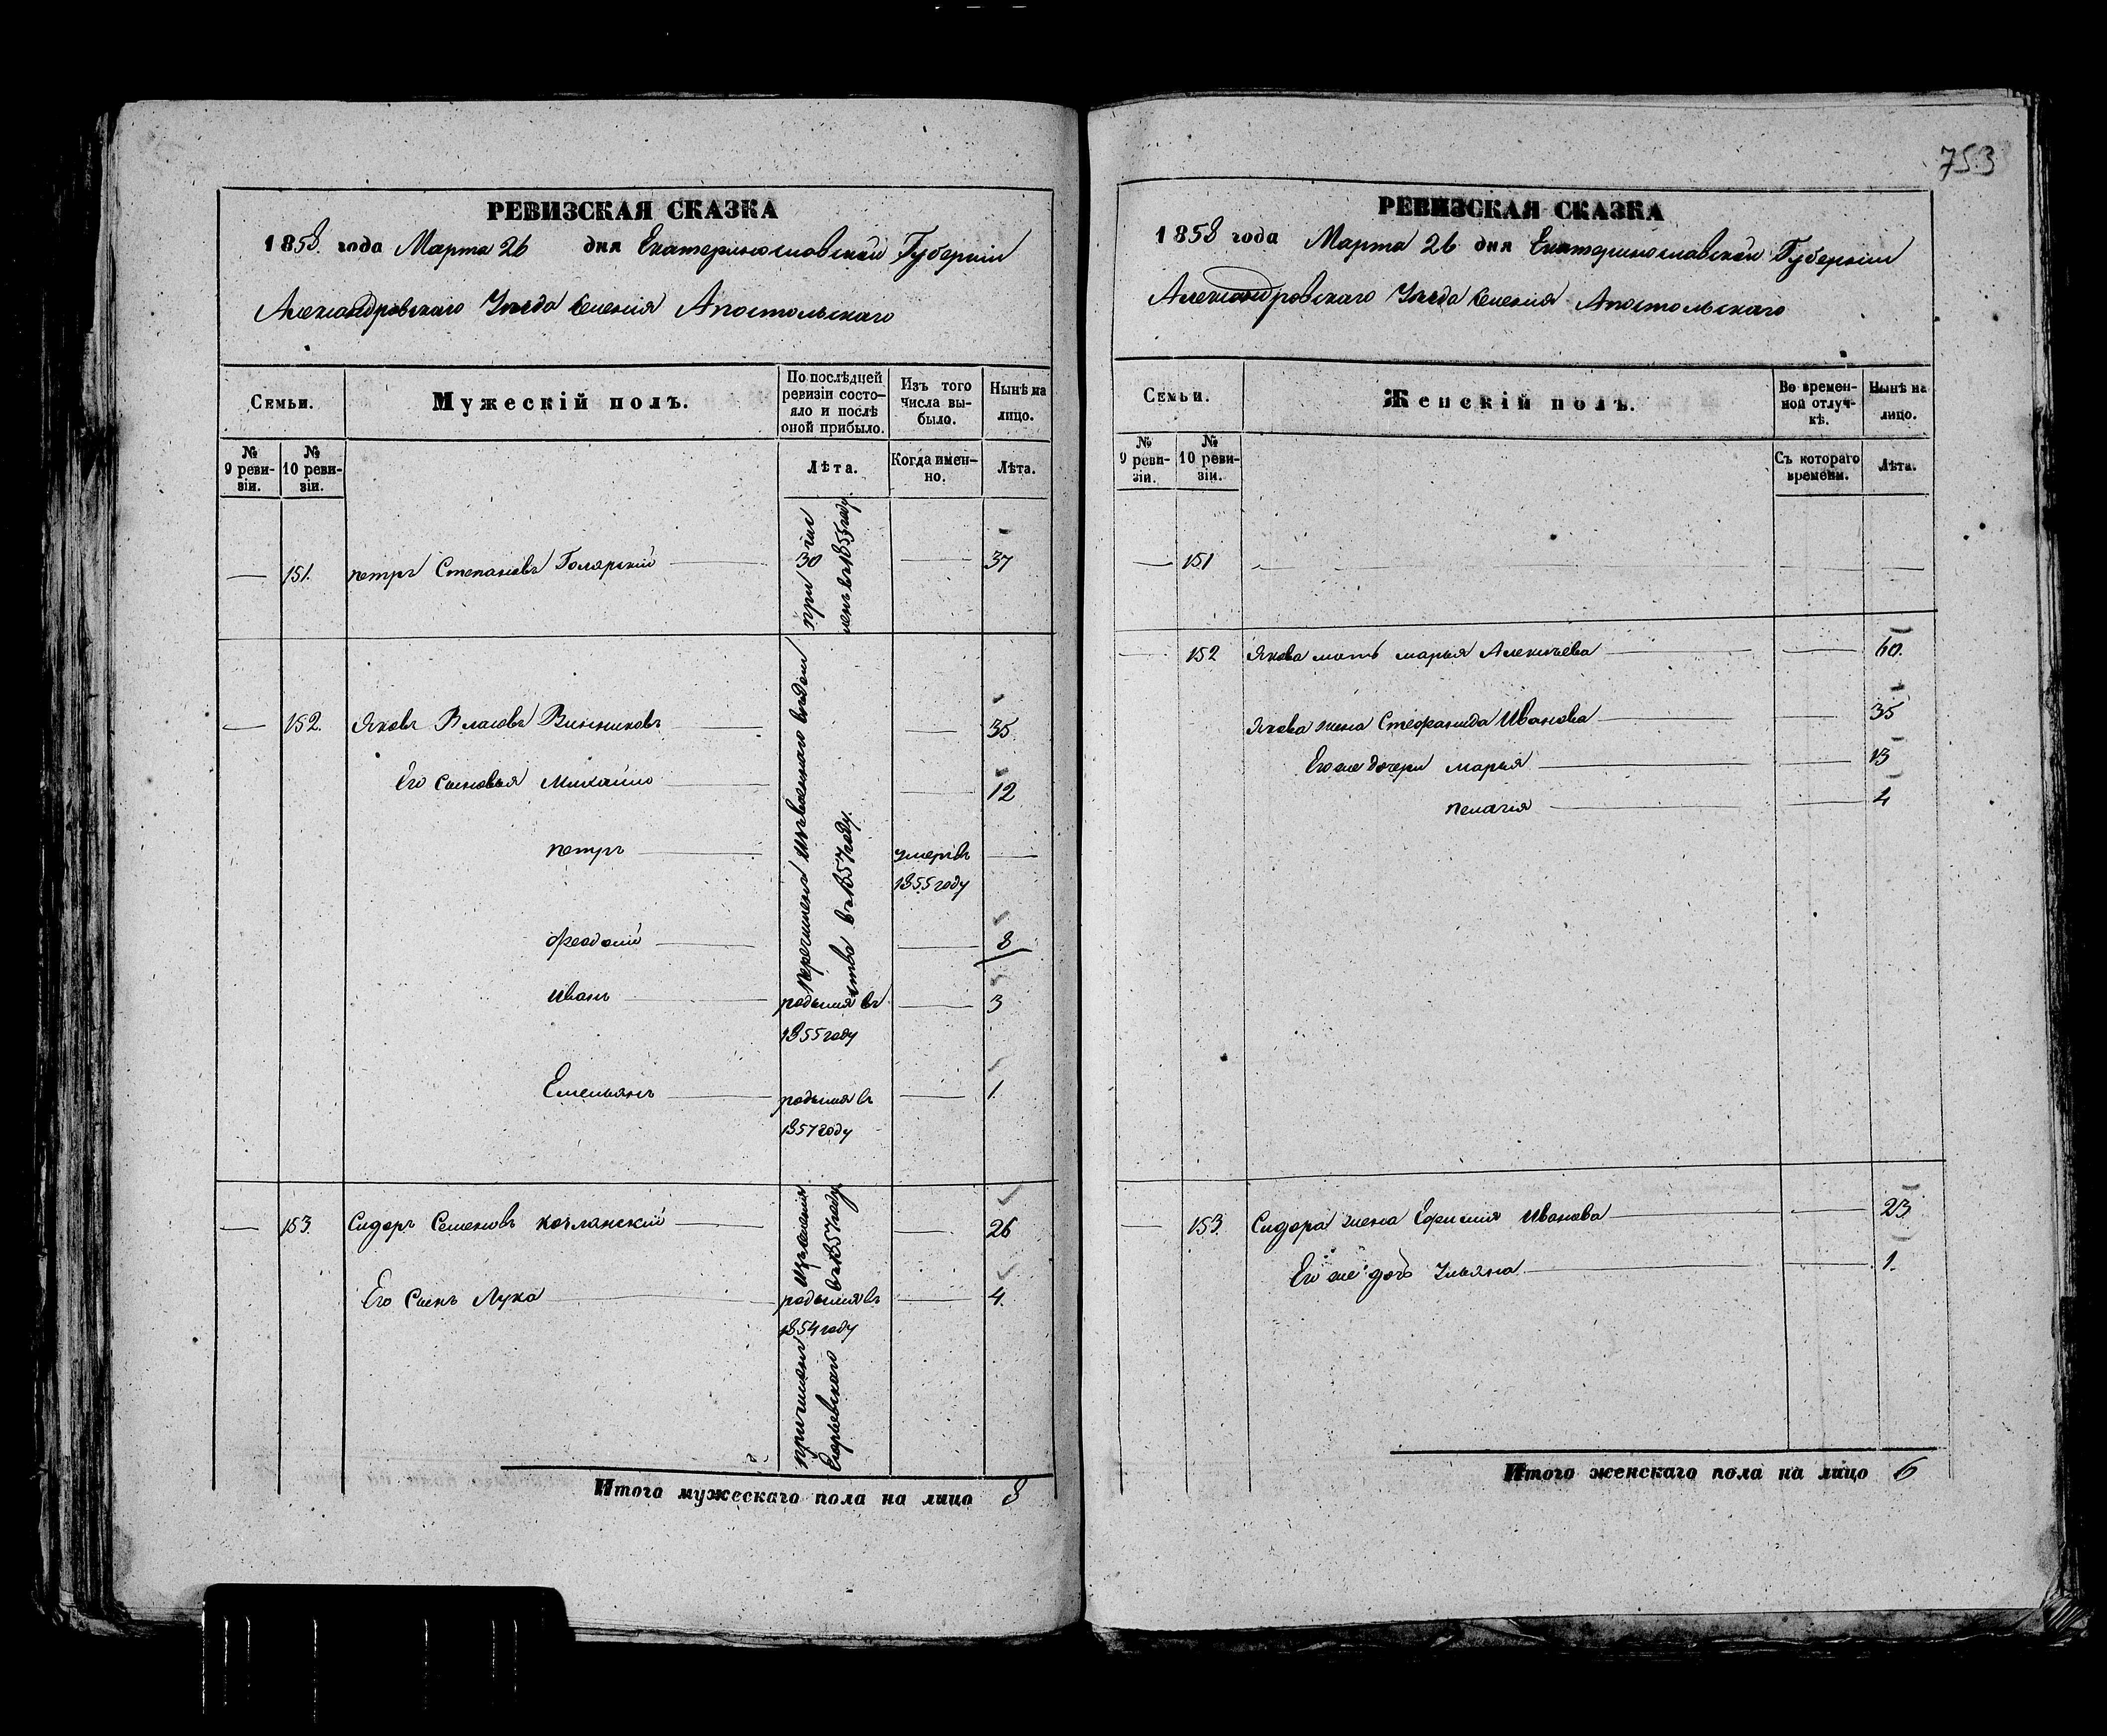 753
РЕВИЗСКАЯ СКАЗКА
1858. года Марта 26 дня Екатеринославской Губерніи
Александровскаго Уезда Селенія Апостольскаго
Семьи.
Мужескій полъ.
По послѣдней ревизіи состояло и послѣ оной прибыло.
Изъ того числа выбыло.
Нынѣ на лицо.
№ 9 ревизіи.
№ 10 ревизіи.
Лѣта.
Когда именно.
Лѣта.
— 151. петръ Степановъ при 30 — 37
в 1855 году.
— 152. Яковъ Власовъ Винниковъ — 35
перечисленъ
в 1857 году.
Его Сыновья Михайло — 12
петръ умеръ въ —
1855 году
Феодосій — 8
Иванъ родился въ — 3
1855 году
Емельянъ родился въ — 1.
1857 году
— 153. Сидоръ Семеновъ — 26
въ 1857 году
Его Сынъ Лука родился въ — 4.
1854 году
Итого мужескаго пола на лицо 8
РЕВИЗСКАЯ СКАЗКА
1858 года Марта 26 дня Екатеринославской Губерніи
Александровскаго Уезда Селенія Апостольскаго
Семьи.
Женскій полъ.
Во временной отлучкѣ.
Нынѣ на лицо.
№ 9 ревизіи.
№ 10 ревизіи.
Съ котораго времени.
Лѣта.
— 151 — — —
— 152 Якова мать марья Алексѣева — 60.
Якова жена Стефанида Иванова — 35
Его же дочери марья — 13
пелагія — 4
— 153. Сидора жена Ефимия Иванова — 23
Его же дочь Ульяна — 1.
Итого женскаго пола на лицо 6